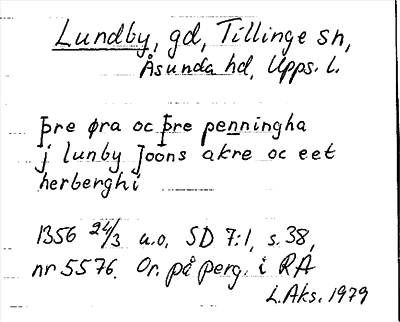 Lundby, gd, Tillinge sn,
Åsunda hd, Upps. l.
þre øra oc þre penningha
j lunby Joons akre oc eet
herberghi
1356 24/3 u.o. SD 7:1, s. 38,
nr 5576. Or. på perg. i RA
L.Aks. 1979